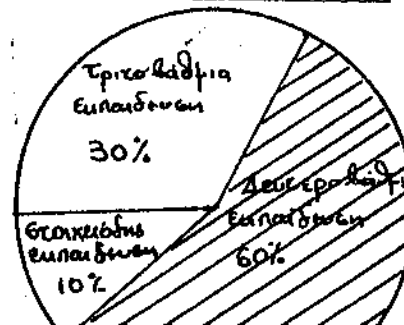 Τριτοβάθμια
Εκπαίδευση
30%
Δευτεροβάθμ
εκπαίδευση
60%
Στοιχειώδης
εκπαίδευση
10%